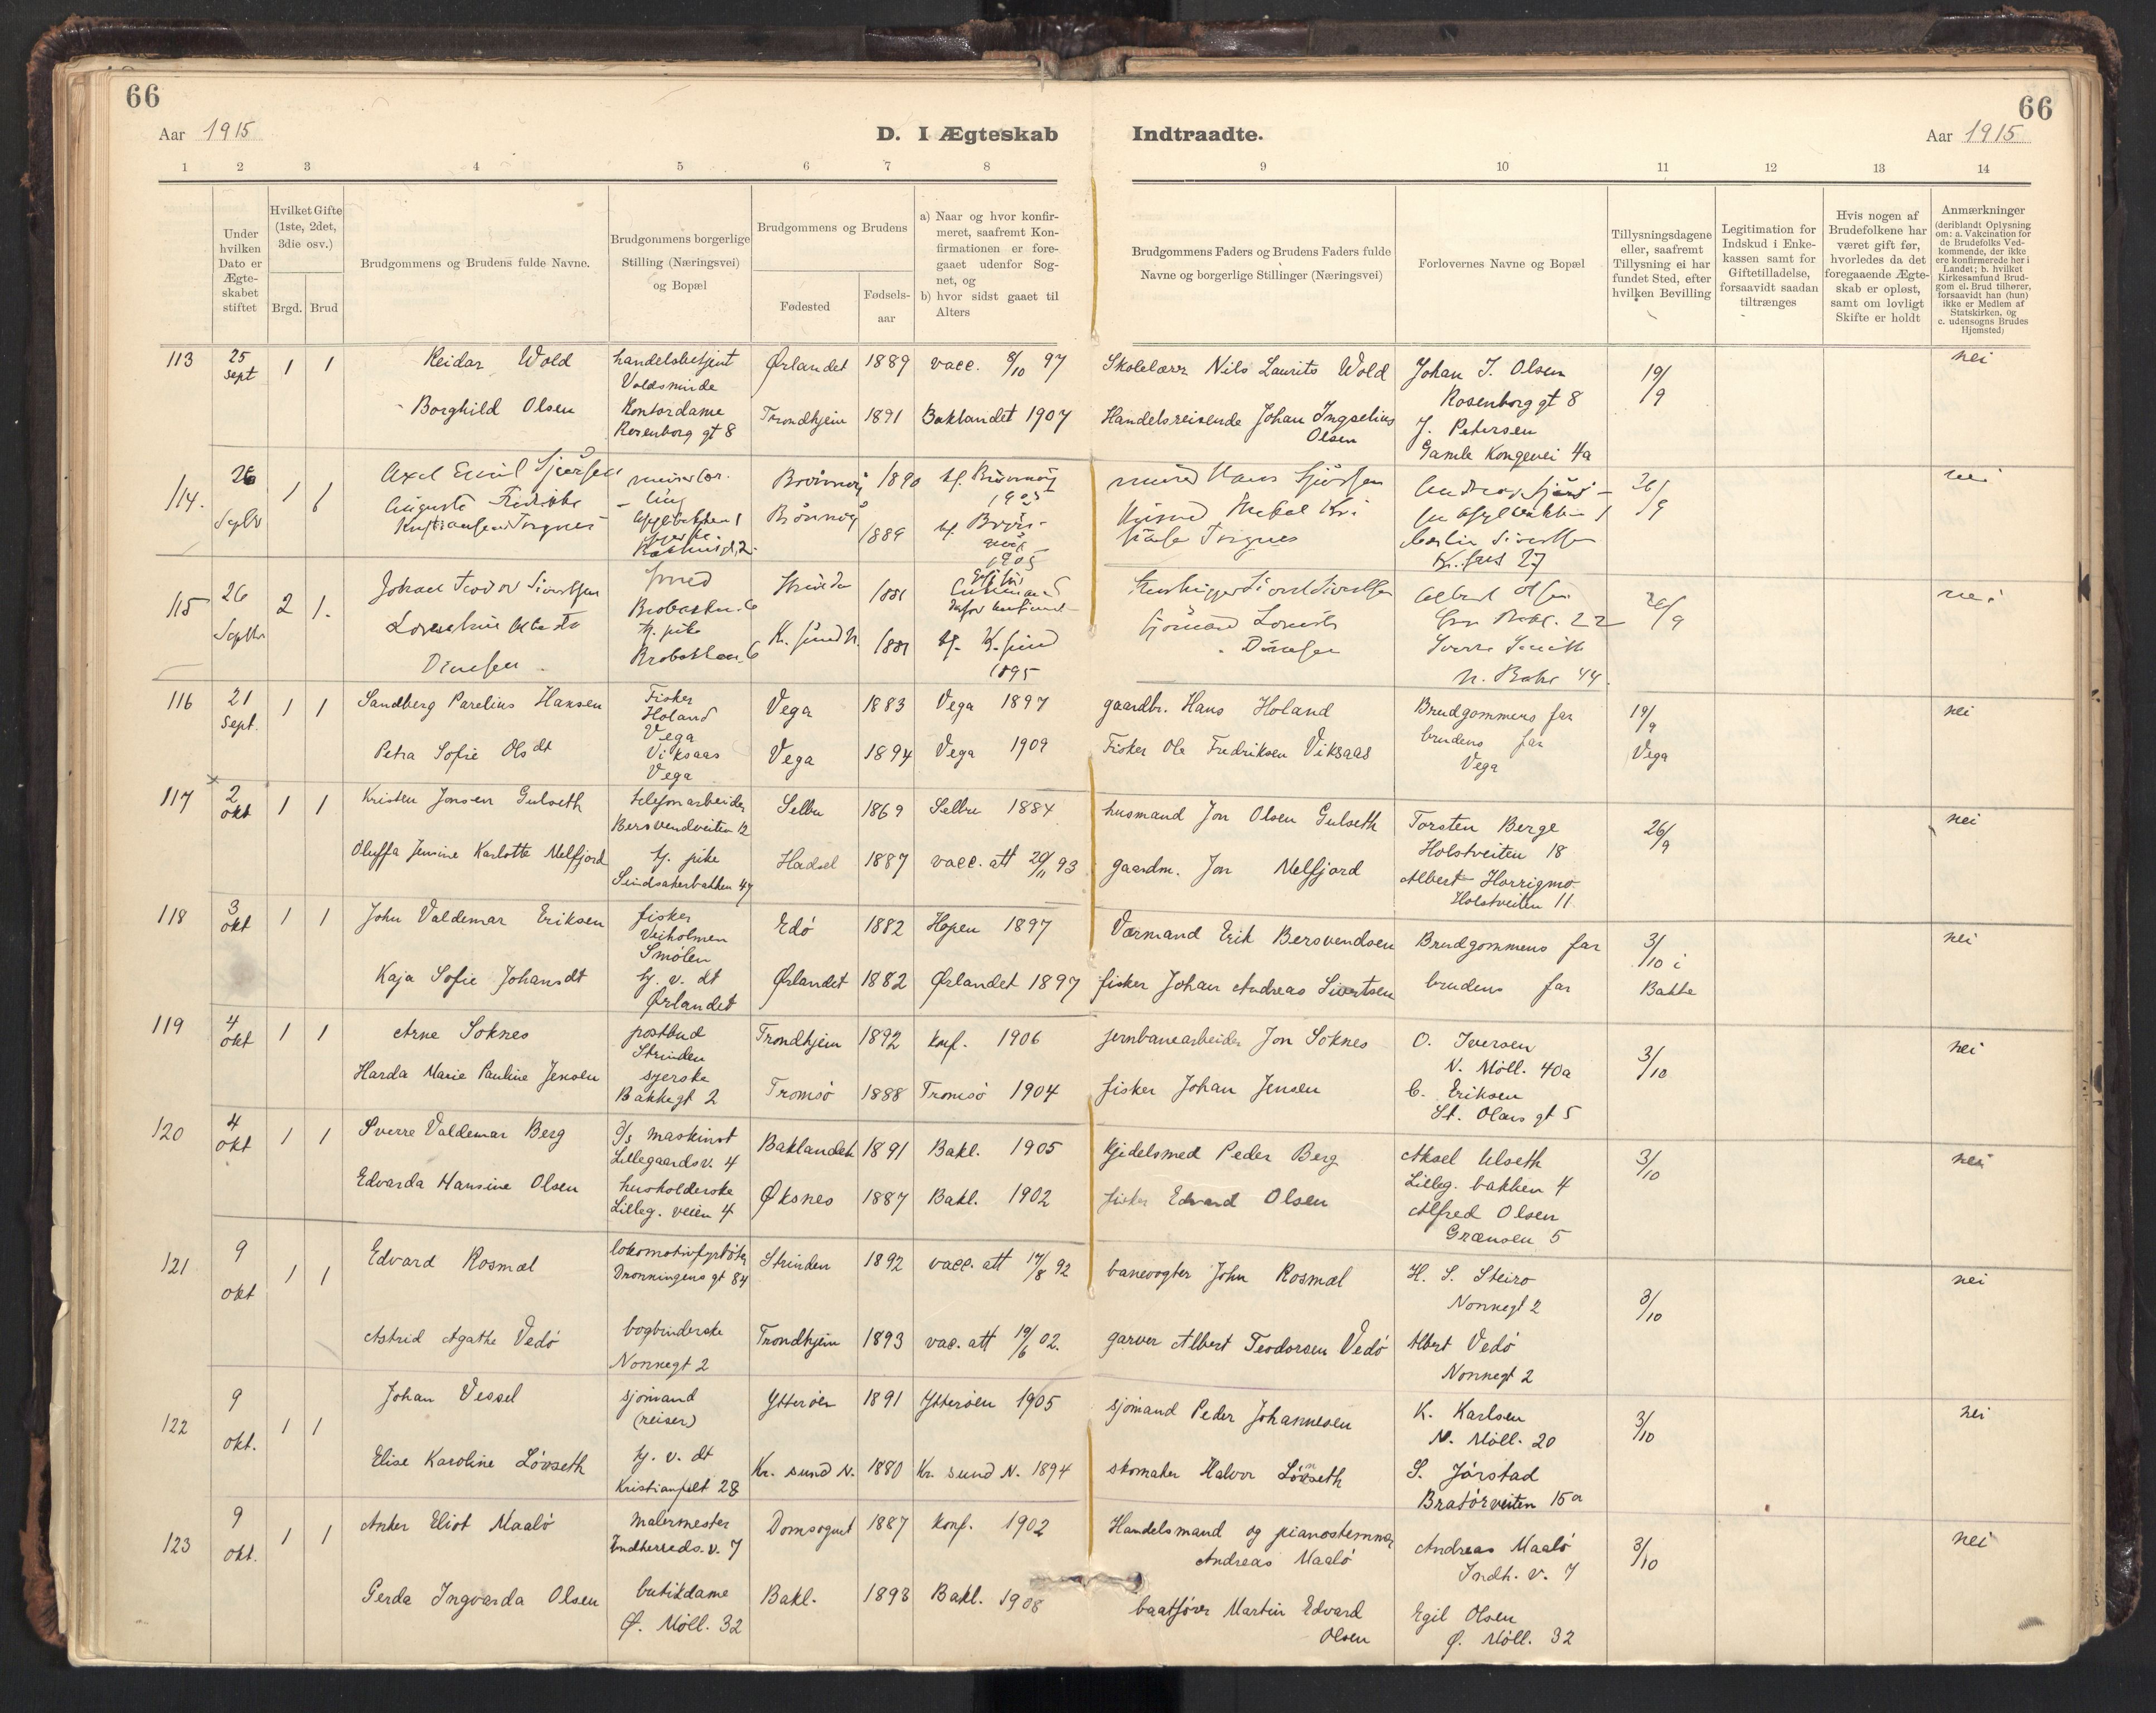 66
66
Aar 1915
D. I Ægteskab Indtraadte.
Aar 1915
1 2 3 4 5 6 7 8 9 10 11 12 13 14
Under hvilken Dato er Ægte-skabet stiftet
Hvilket Gifte (1ste, 2det, 3die osv.)
Brgd. Brud
Brudgommens og Brudens fulde Navne.
Brudgommens borgerlige Stilling (Næringsvei) og Bopæl
Brudgommens og Brudens
Fødested
Fødsels-aar
a) Naar og hvor konfir-meret, saafremt Kon-firmationen er fore-gaaet udenfor Sog-net, og
b) hvor sidst gaaet til Alters
Brudgommens Faders og Brudens Faders fulde Navne og borgerlige Stillinger (Næringsvei)
Forlovernes Navne og Bopæl
Tillysningsdagene eller, saafremt Tillysning ei har fundet Sted, efter hvilken Bevilling
Legitimation for Indskud i Enke-kassen samt for Giftetilladelse, forsaavidt saadan tiltrænges
Hvis nogen af Brudefolkene har været gift før, hvorledes da det foregaaende Ægte-skab er opløst, samt om lovligt Skifte er holdt
Anmærkninger (deriblandt Oplysning om: a. Vakcination for de Brudefolks Ved-kommende, der ikke ere konfirmerede her i Landet; b. hvilket Kirkesamfund Brud-gom el. Brud tilhører, forsaavidt han (hun) ikke er Medlem af Statskirken, og c. udensogns Brudes Hjemsted)
113 25 sept 1 1 Reidar Wold handelsbetjent Voldsminde Ørlandet 1889 vacc. 8/10 97 Skolelærer Nils Laurits Wold Johan I. Olsen Rosenborg gt 8 19/9 nei
Borghild Olsen Kontordame Rosenborg gt 8 Trondhjem 1891 Baklandet 1907 Handelsreisende Johan Ingselius Olsen J. Petersen Gamle Kongevei 4a
114. 26 Septbr 1 1 Axel Emil 1890 1905 26/9 nei
Auguste Torgnes Brönnöy 1889 1905 Torgnes
115 26 Septbr 2 1. Johan Teodor Sivertsen Brobakken 6 Strinda 1881 26/9 nei
Dinesen tj. pike Brobakken 6 K. sund N. 1881 K. sund 1895 Dinesen
116 21 sept. 1 1 Sandberg Parelius Hansen Fisker Holand Vega Vega 1883 Vega 1897 gaardbr. Hans Holand Brudgommens far 19/9 Vega nei
Petra Sofie Olsdt Viksaas Vega Vega 1894 Vega 1909 Fisker Ole Fredriksen Viksaas brudens far Vega
117 2 okt 1 1 Kristen Jonsen Gulseth telefonarbeider Bersvendveiten 12 Selbu 1869 Selbu 1884 husmand Jon Olsen Gulseth Torsten Berge Holstveiten 18 26/9 nei
Oluffa Jensine Karlotte Melfjord tj. pike Sindsakerbakken 47 Hadsel 1887 vacc. att 20/11 93 gaardm. Jon Melfjord Albert Horrigmo Holstveiten 11
118 3 okt 1 1 John Valdemar Eriksen fisker Veiholmen Smølen Edö 1882 Hopen 1897 Værmand Erik Bersvendsen Brudgommens far 3/10 i Bakke nei
Kaja Sofie Johansdt tj. v. dt Ørlandet Ørlandet 1882 Ørlandet 1897 fisker Johan Andreas Sivertsen brudens far
119 4 okt 1 1 Arne Soknes postbud Strinden Trondhjem 1892 konf. 1906 jernbanearbeider Jon Soknes O. Iversen N. Möll. 40a 3/10 nei
Harda Marie Pauline Jensen syerske Bakkegt 2 Tromsö 1888 Tromsö 1904 fisker Johan Jensen C. Eriksen St. Olavs gt 5
120 4 okt 1 1 Sverre Valdemar Berg D/S maskinist Lillegaardsv. 4 Baklandet 1891 Bakl. 1905 kjedelsmed Peder Berg Aksel Ulseth Lilleg. bakken 4 3/10 nei
Edvarda Hansine Olsen husholderske Lilleg. veien 4 Øksnes 1887 Bakl. 1902 fisker Edvard Olsen Alfred Olsen Grænsen 5
121 9 okt 1 1 Edvard Rosmæl lokomotivfyrböter Dronningens gt 84 Strinden 1892 vacc. att 17/8 92 banevogter John Rosmæl H. S. Steiro Nonnegt 2 3/10 nei
Astrid Agathe Vedö bogbinderske Nonnegt 2 Trondhjem 1893 vac. att 19/6 02. garver Albert Teodorsen Vedö Albert Vedö Nonnegt 2
122 9 okt. 1 1 Johan Vessel sjömand (reiser) Ytteröen 1891 Ytteröen 1905 sjömand Peder Johannesen K. Karlsen N. Möll. 20 3/10 nei
Elise Karoline Lövseth tj. v. dt Kristianfelt 28 Kr. sund N. 1880 Kr. sund N. 1894 skomaker Halvor Lövseth S. Jörstad Bratörveiten 15a
123 9 okt. 1 1 Anker Eliot Maalö malermester Indherreds. v. 7 Domsognet 1887 konf. 1902 Handelsmand og pianostemmer Andreas Maalö Andreas Maalö Indh. v. 7 3/10 nei
Gerda Ingvarda Olsen butikdame Ø. Möll. 32 Bakl. 1893 Bakl. 1908 baatförer Martin Edvard Olsen Egil Olsen Ø. Möll. 32